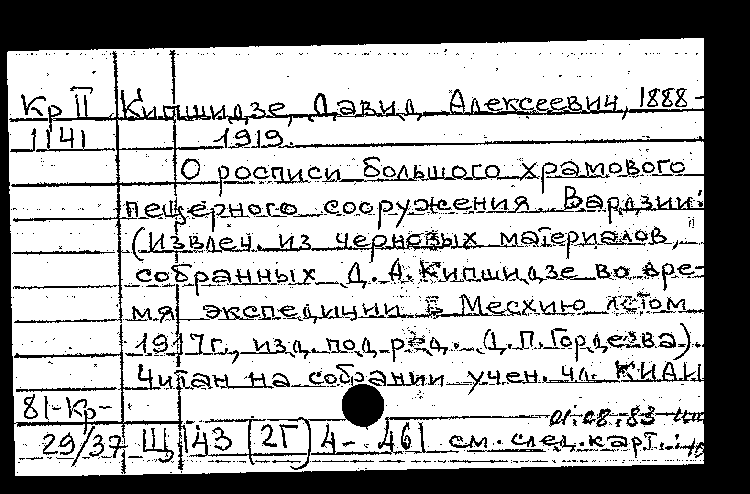 Кр II Кипшидзе, Давид Алексеевич, 1888-
1141 1919.
О росписи большого храмового
пещерного сооружения Вардзии:
(Извлеч. из черновых материалов,
собранных Д. А. Кипшидзе во вре-
мя экспедиции в Месхию летом
1917г., изд. под ред. Д.П. Гордеева).
Читан на собрании учен. чл. КИАИ
81-Кр-
01.08.83
29/37 Щ 143 (2Г) 4- 461 см. след. карт.